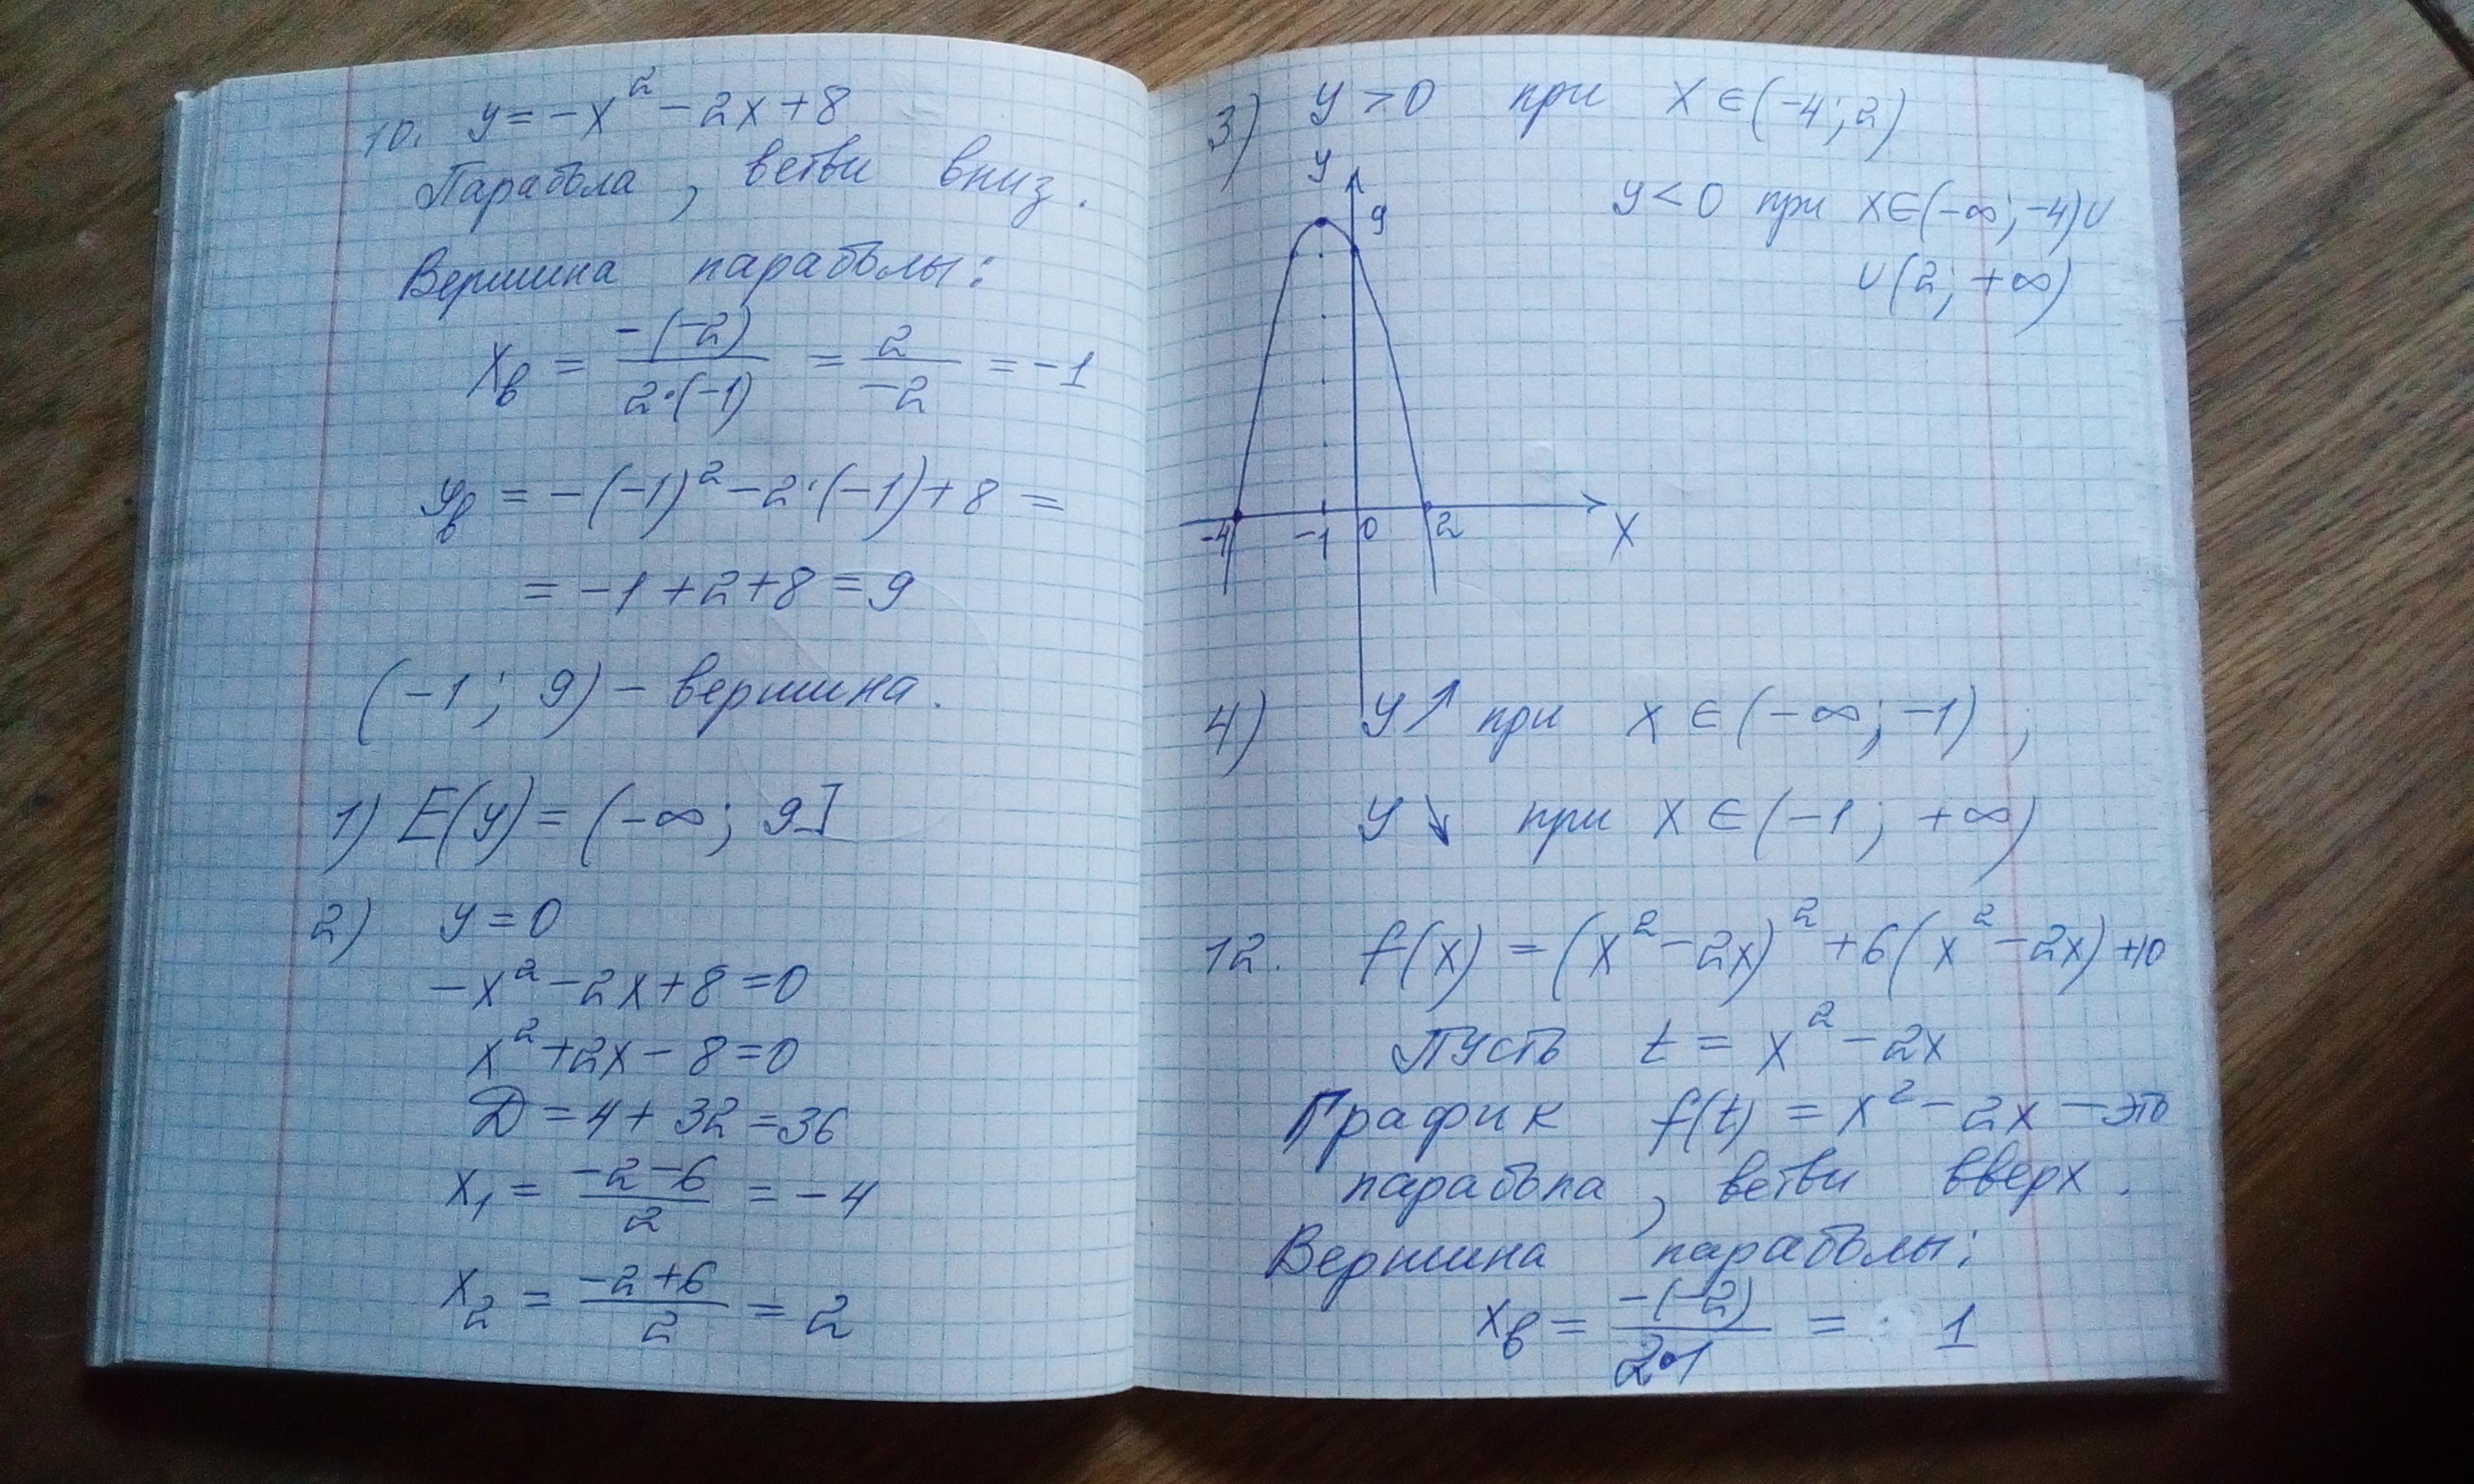 10. y = -x² - 2x + 8
Парабола, ветви вниз.
Вершина параболы:
xв = -(-2) / 2·(-1) = 2 / -2 = -1
yв = -(-1)² - 2·(-1) + 8 =
= -1 + 2 + 8 = 9
(-1; 9) - вершина.
1) E(y) = (-∞; 9]
2) y = 0
-x² - 2x + 8 = 0
x² + 2x - 8 = 0
D = 4 + 32 = 36
x₁ = -2-6 / 2 = -4
x₂ = -2+6 / 2 = 2
3) y > 0 при x ∈ (-4; 2)
y < 0 при x ∈ (-∞; -4) ∪
∪ (2; +∞)
y
9
-4 -1 0 2 x
4) y↗ при x ∈ (-∞; -1);
y↘ при x ∈ (-1; +∞)
12. f(x) = (x² - 2x)² + 6(x² - 2x) + 10
Пусть t = x² - 2x
График f(t) = x² - 2x - это
парабола, ветви вверх.
Вершина параболы:
xв = -(-2) / 2·1 = 1